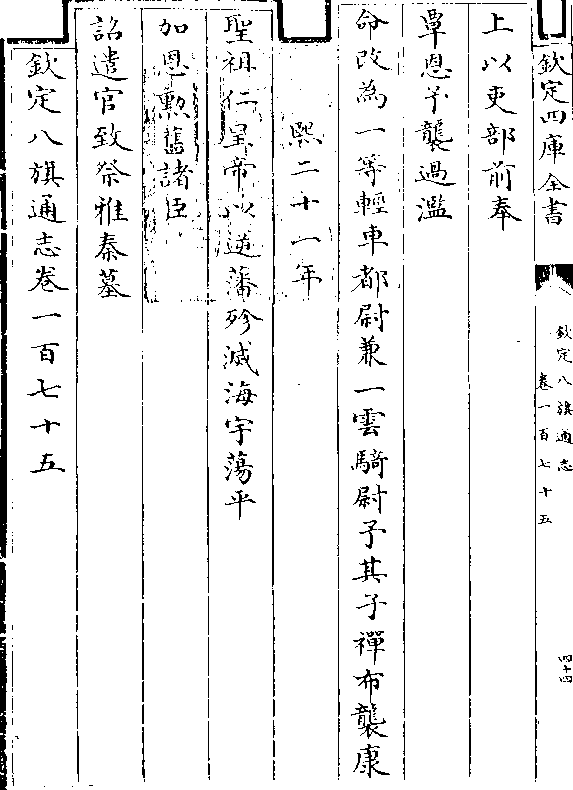 欽定四庫全書
欽定八旗通志
卷一百七十五
四十四
上以吏部前奉
覃恩予襲過濫
命改為一等輕車都尉兼一雲騎尉予其子禪布襲康
熙二十一年
聖祖仁皇帝以逆藩殄滅海宇蕩平
加恩勲舊諸臣
詔遣官致祭雅秦墓
欽定八旗通志卷一百七十五